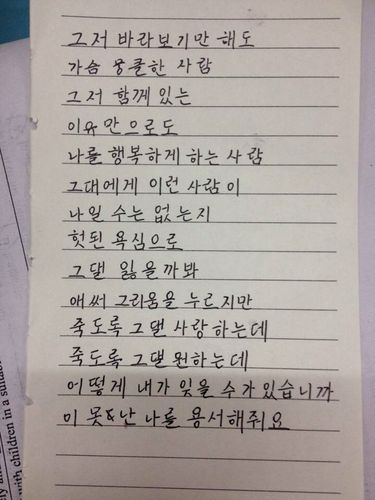 그저 바라보기만 해도
가슴 뭉클한 사람
그저 함께 있는
이유 만으로도
나를 행복하게 하는 사람
그대에게 이런 사람이
나일 수는 없는지
헛된 욕심으로
그댈 잃을까봐
애써 그리움을 누르지만
죽도록 그댈 사랑하는데
죽도록 그댈 원하는데
어떻게 내가 잊을 수가 있습니까
미 못난 나를 용서해줘요
with children in a